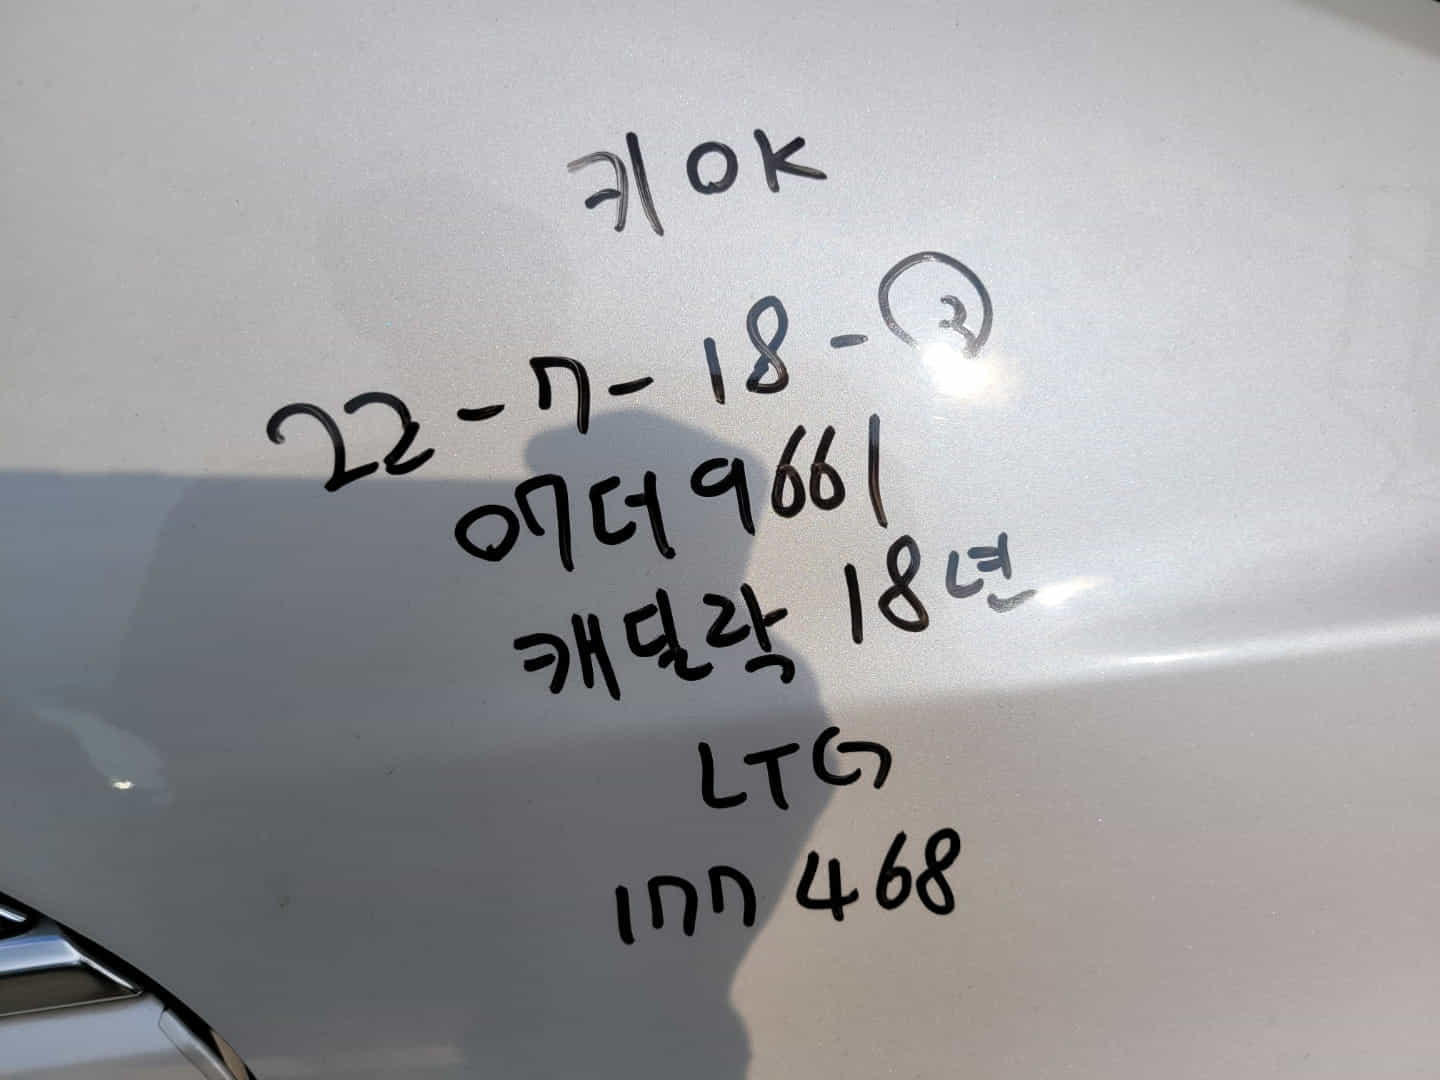 키 OK
22-7-18-②
07더9661
캐딜락 18년
LTG
177468